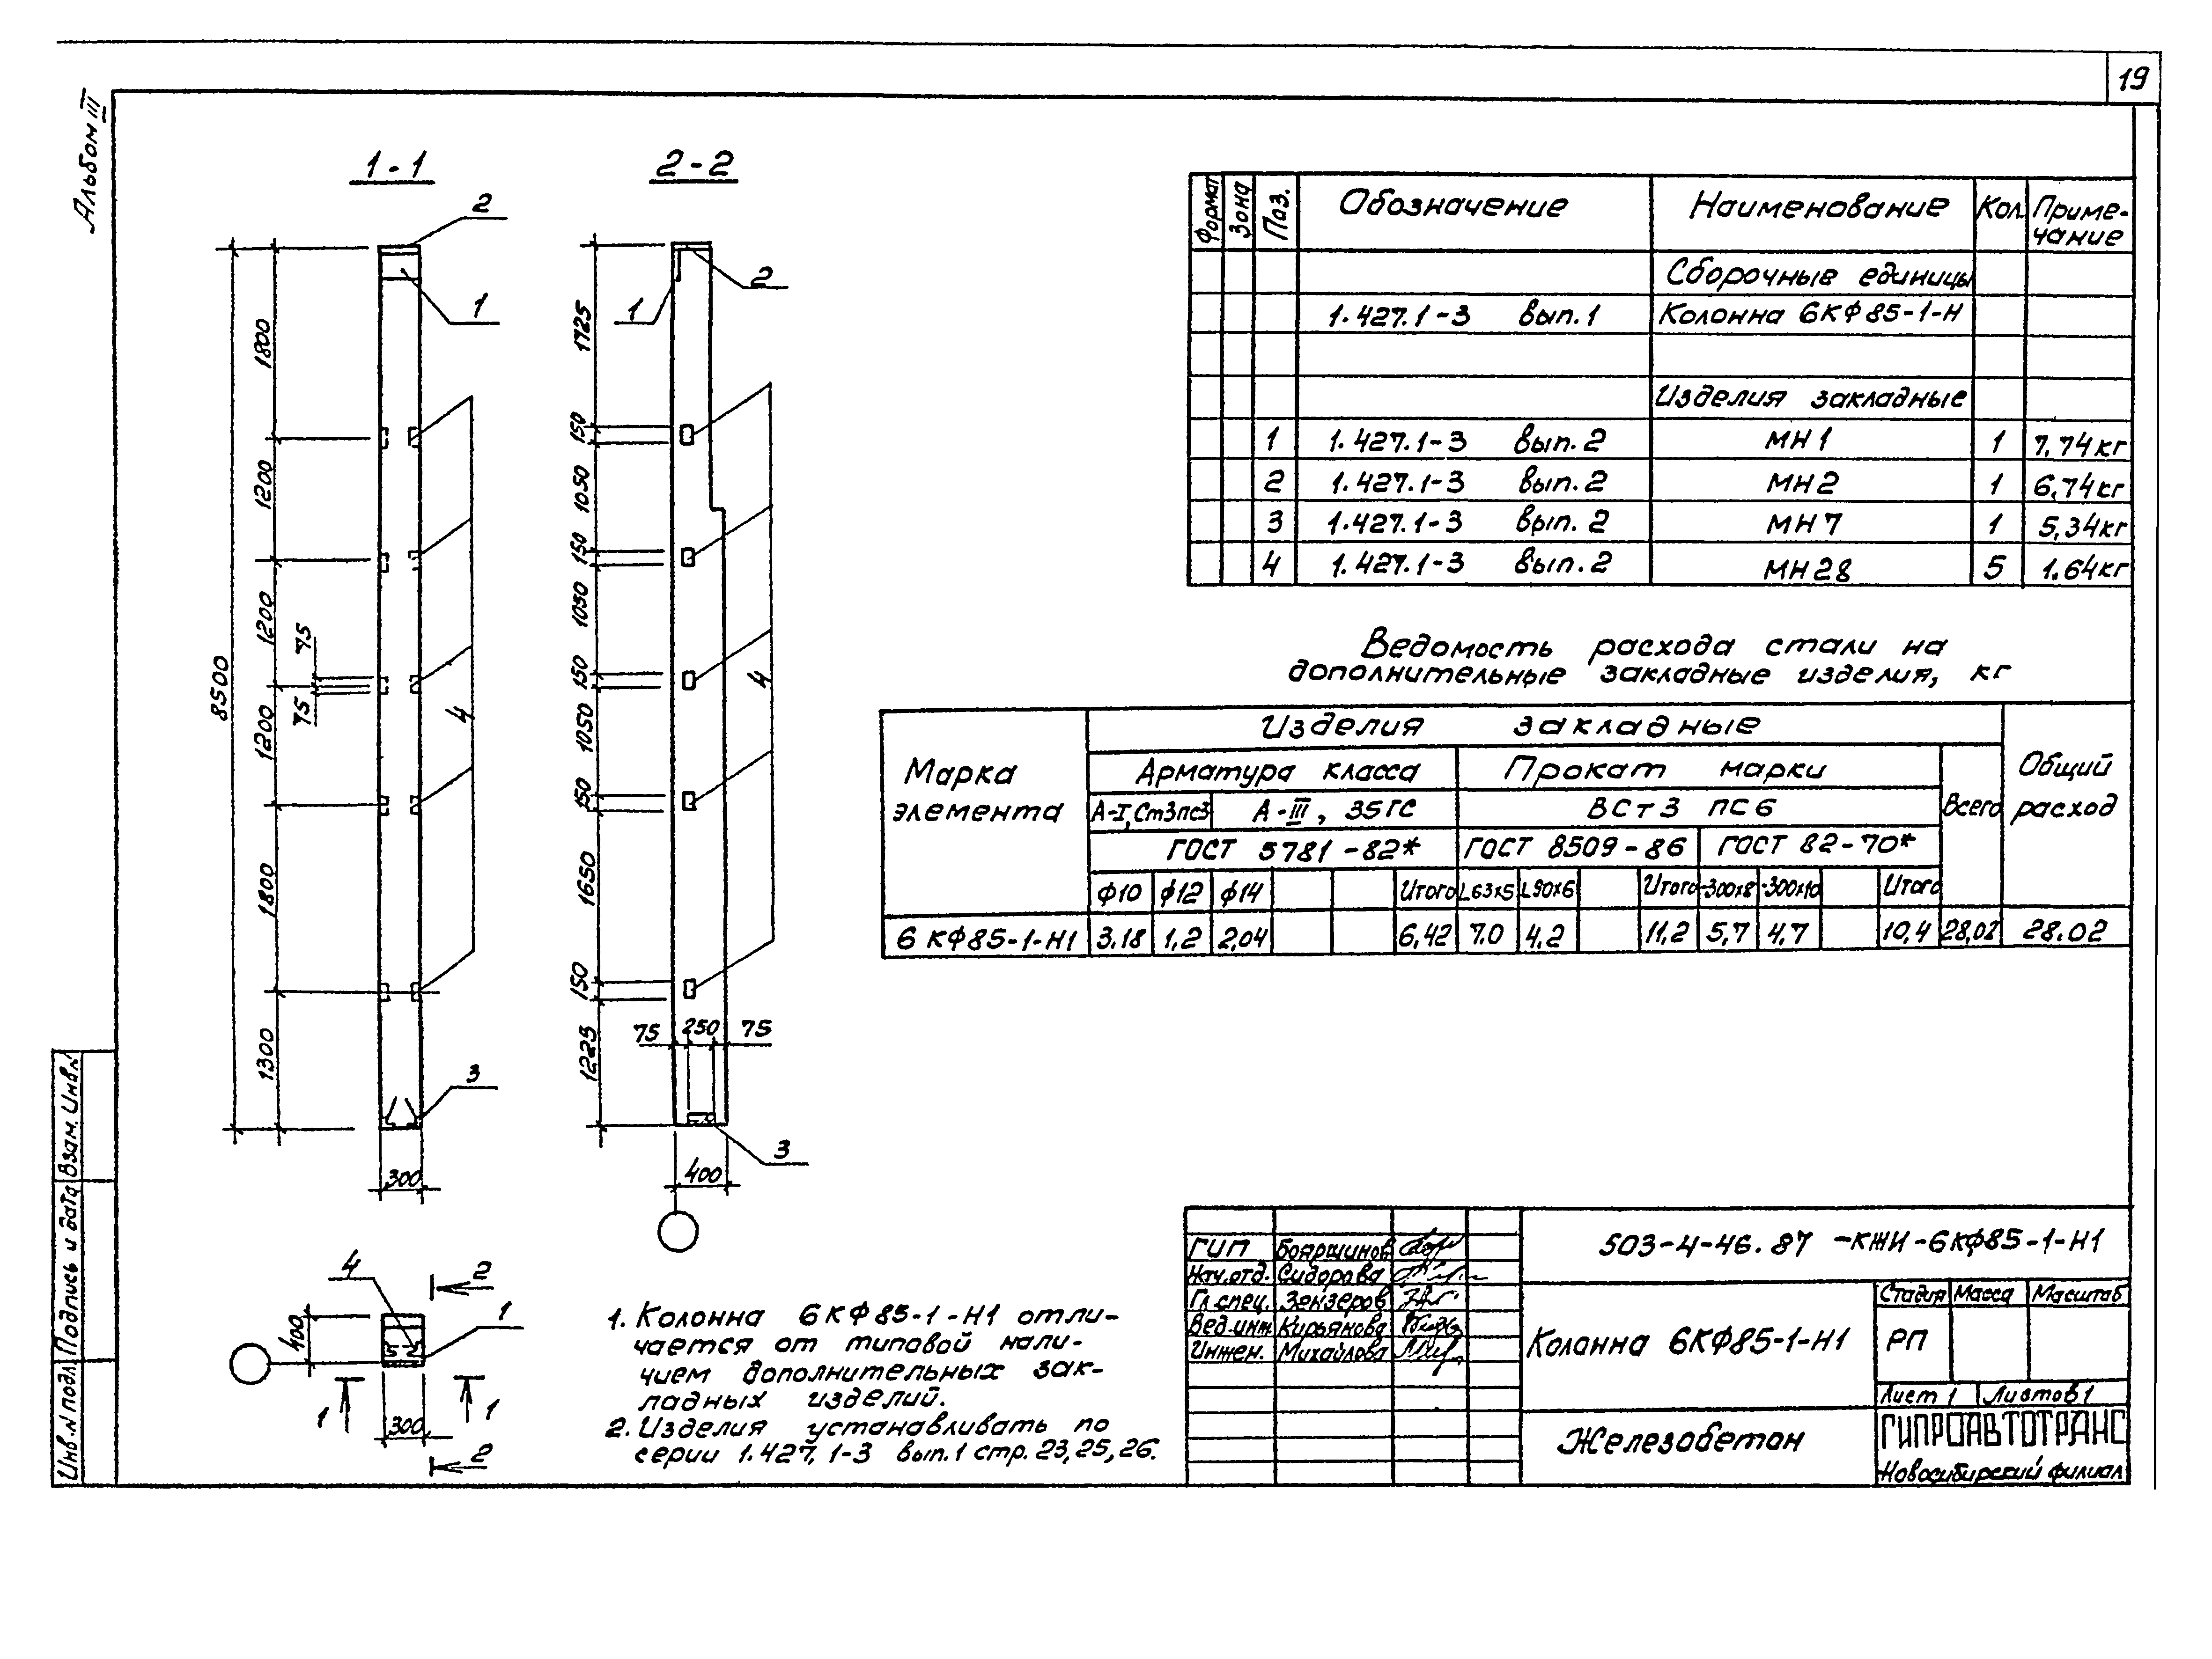 19
Альбом III
1-1
2-2
2
1
8500
1800
1200
1200
1200
1800
1300
75
75
4
3
300
2
1
1725
150
1050
150
1050
150
1050
150
1650
150
1225
4
75 250 75
3
400
4
400
300
2
1
1
1
2
Формат Зона Поз. Обозначение Наименование Кол. Приме-
чание
Сборочные единицы
1.427.1-3 вып.1 Колонна 6КФ85-1-Н
Изделия закладные
1 1.427.1-3 вып.2 МН1 1 7,74кг
2 1.427.1-3 вып.2 МН2 1 6,74кг
3 1.427.1-3 вып.2 МН7 1 5,34кг
4 1.427.1-3 вып.2 МН28 5 1.64кг
Ведомость расхода стали на
дополнительные закладные изделия, кг
Марка
элемента
Изделия закладные
Общий
расход
Арматура класса Прокат марки
Всего
А-I,Ст3пс3 А-III, 35ГС ВСт3 пс6
ГОСТ 5781-82* ГОСТ 8509-86 ГОСТ 82-70*
ф10 ф12 ф14 Итого L63х5 L90х6 Итого -300х8 -300х10 Итого
6 КФ85-1-Н1 3.18 1,2 2,04 6,42 7.0 4.2 11,2 5,7 4,7 10,4 28,02 28.02
1. Колонна 6КФ85-1-Н1 отли-
чается от типовой нали-
чием дополнительных зак-
ладных изделий.
2. Изделия устанавливать по
серии 1.427,1-3 вып.1 стр.23,25,26.
ГИП Бояршинов
Нач.отд. Сидорова
Гл.спец. Зензеров
Вед.инж. Кирьянова
Инжен. Михайлова
503-4-46.87 -КЖИ-6КФ85-1-Н1
Колонна 6КФ85-1-Н1
Стадия Масса Масштаб
РП
Лист 1 Листов 1
Железобетон
ГИПРОАВТОТРАНС
Новосибирский филиал
Инв.N подл. Подпись и дата Взам. Инв.